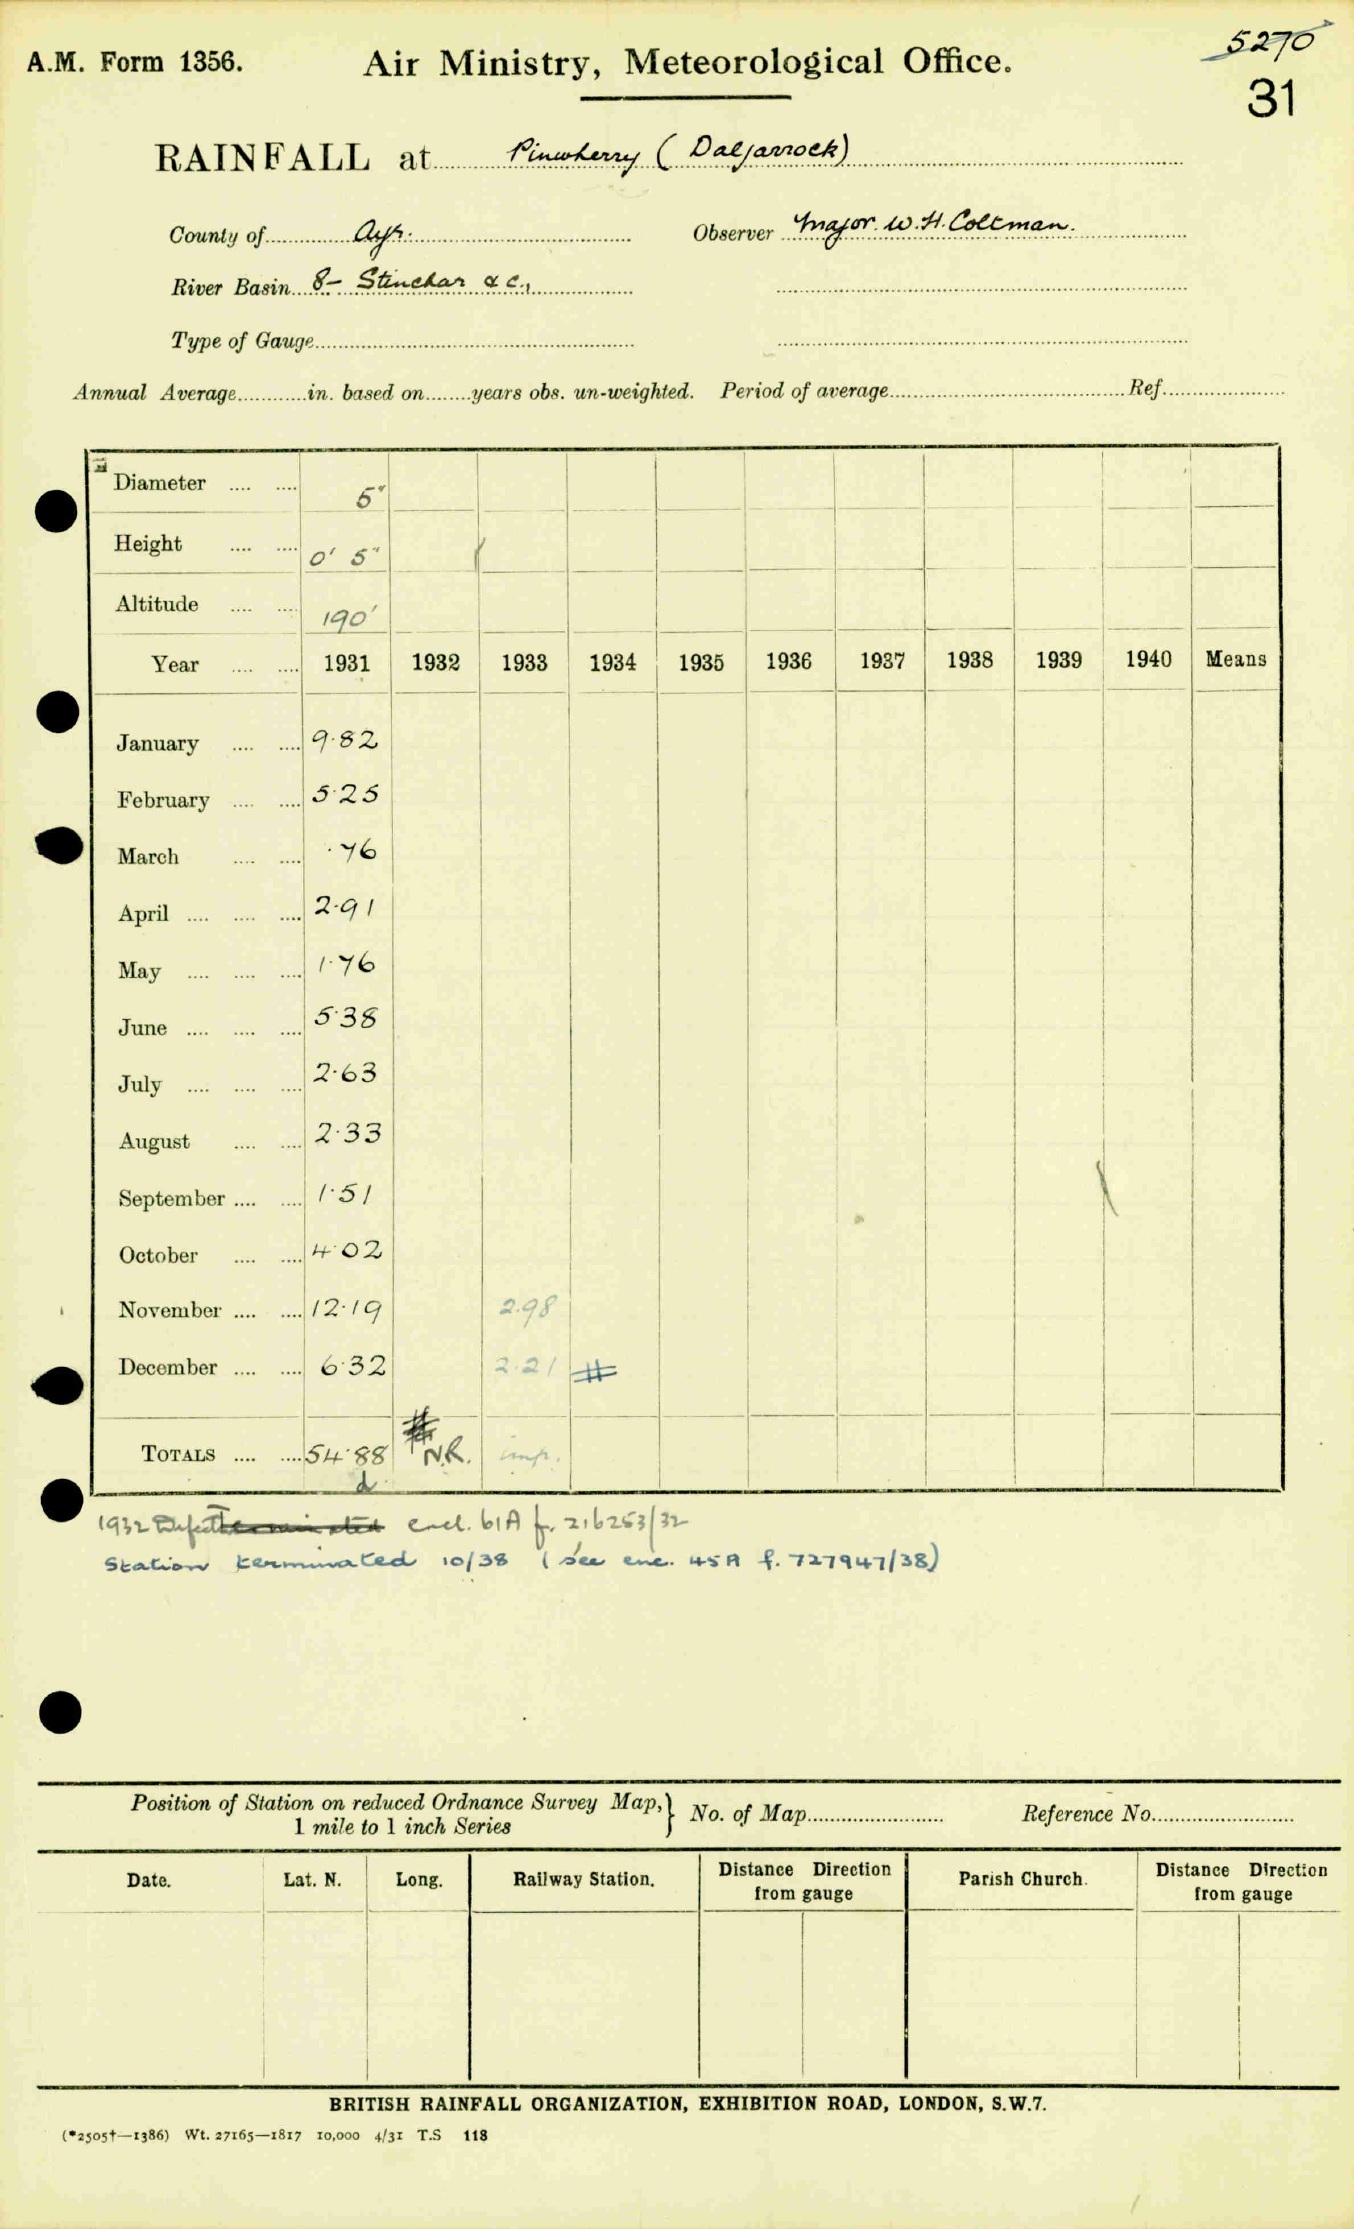 5270
A.M. Form 1356. Air Ministry, Meteorological Office.
31
RAINFALL at Pinwherry (Daljarrock)
County of Ayr. Observer Major W. H. Coltman.
River Basin 8- Stinchar &c.,
Type of Gauge
Annual Average in. based on years obs. un-weighted. Period of average Ref.
Diameter 5"
Height 0' 5"
Altitude 190'
Year 1931 1932 1933 1934 1935 1936 1937 1938 1939 1940 Means
January 9.82
February 5.25
March .76
April 2.91
May 1.76
June 5.38
July 2.63
August 2.33
September 1.51
October 4.02
November 12.19 2.98
December 6.32 2.21 #
TOTALS 54.88 N.R. imp.
d
1932 Defect Terminated encl. 61A f. 216253/32
Station terminated 10/38 (see enc. 45A f. 727947/38)
Position of Station on reduced Ordnance Survey Map,} No. of Map Reference No.
1 mile to 1 inch Series
Date. Lat. N. Long. Railway Station. Distance Direction Parish Church. Distance Direction
from gauge from gauge
BRITISH RAINFALL ORGANIZATION, EXHIBITION ROAD, LONDON, S.W.7.
(*2505†—1386) Wt. 27165—1817 10,000 4/31 T.S 118